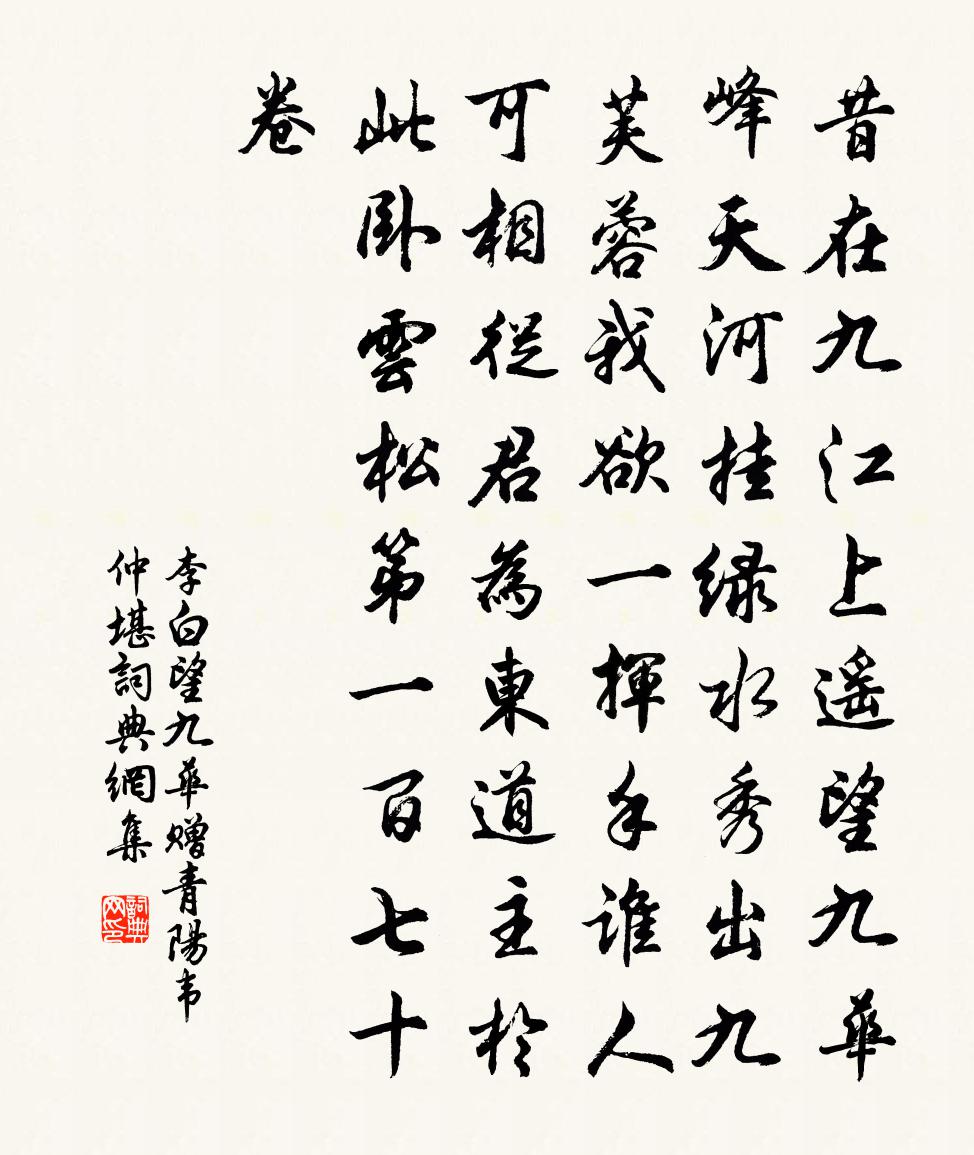 昔在九江上遥望九華
峰天河挂緑水秀出九
芙蓉我欲一揮手誰人
可相從君為東道主於
此卧雲松第一百七十
卷
李白望九華贈青陽韦
仲堪詞典網集
詞典网印